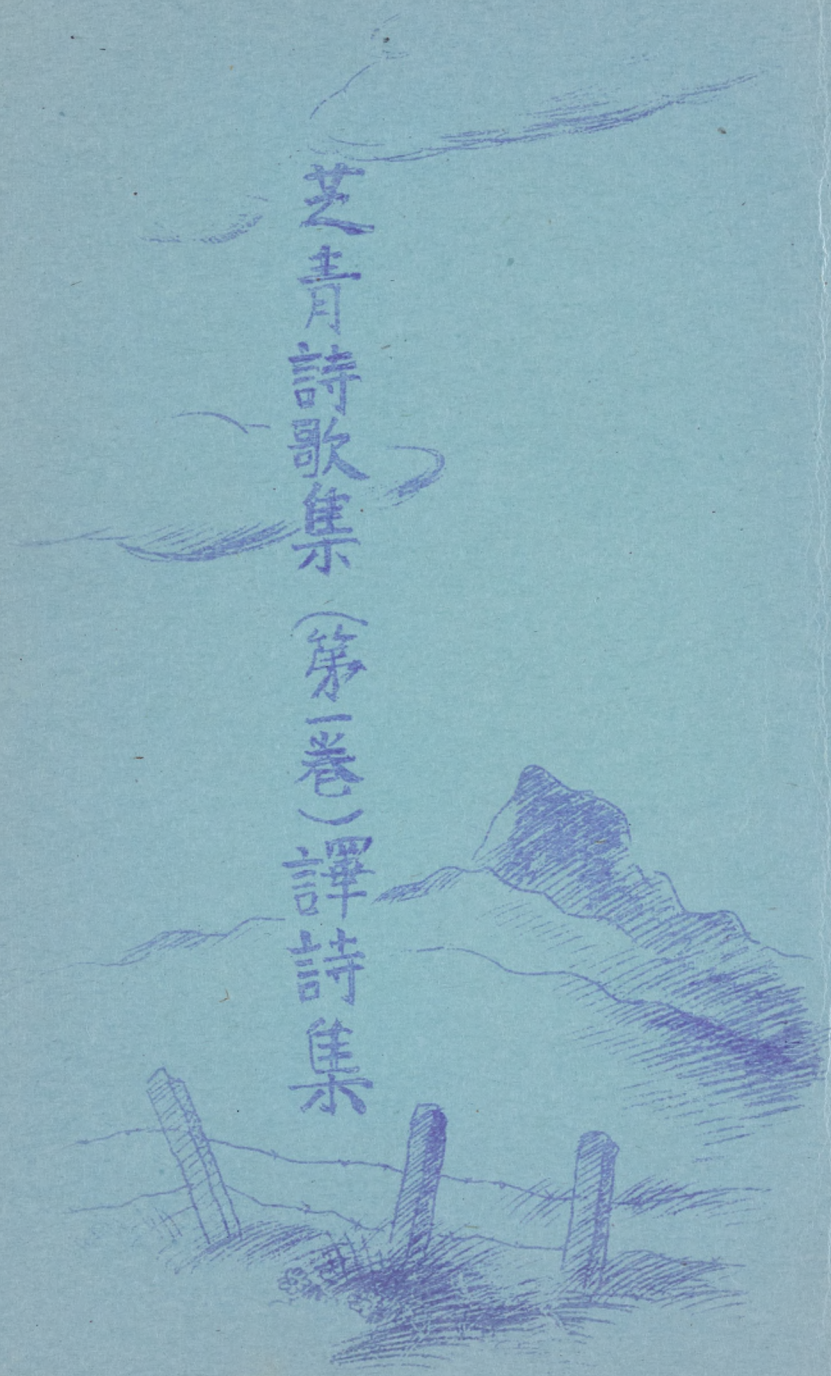 芝青詩歌集（第一巻）譯詩集